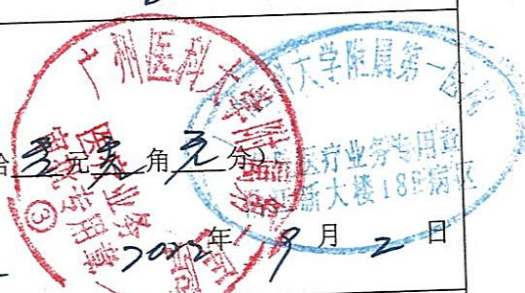 广州医科大学附属第一医院
医疗业务
审批专用章
③
大学附属第一医院
医疗业务专用章
新大楼18F病区
拾 元 角 分)
2022年 9 月 2 日